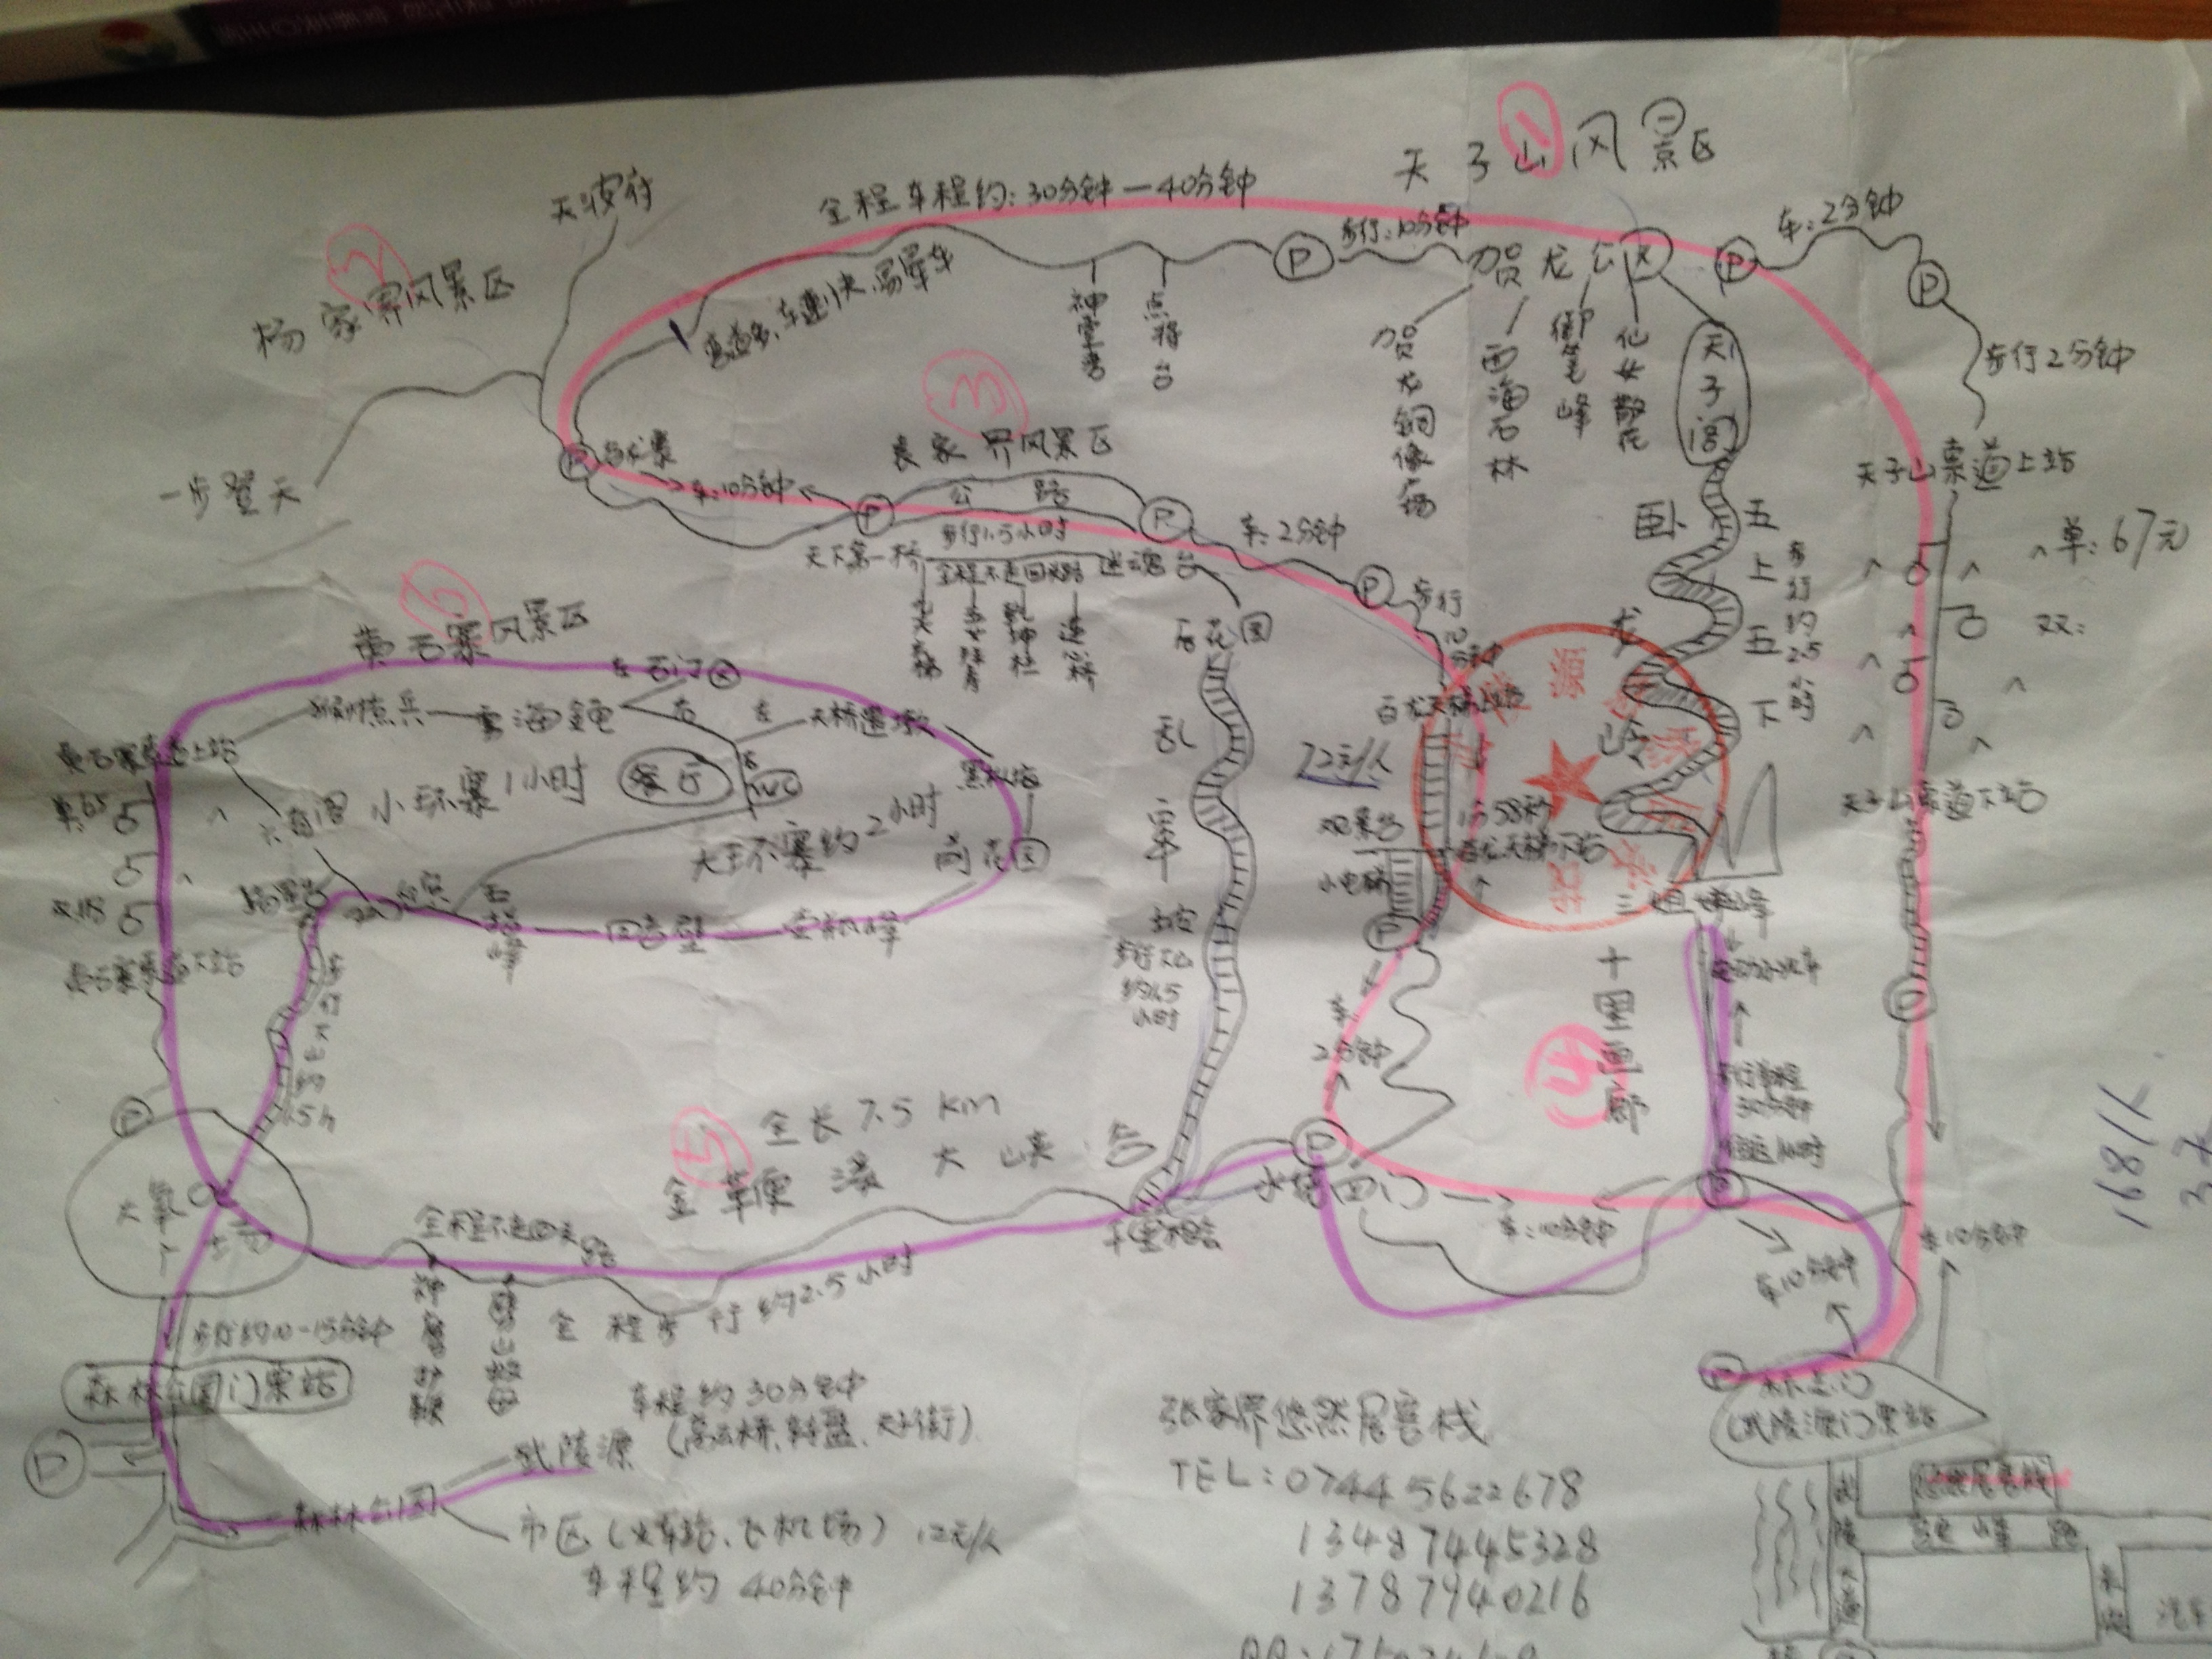 天子山风景区
天波府
全程车程约:30分钟—40分钟
车:2分钟
步行:10分钟
贺龙公园
杨家界风景区
弯道多,车速快,易晕车
神堂湾
点将台
贺龙铜像广场
西海石林
御笔峰
仙女散花
天子阁
步行2分钟
一步登天
乌龙寨
车:10分钟
袁家界风景区
公路
步行1.5小时
天下第一桥
全程不走回头路
迷魂台
车:2分钟
天子山索道上站
单:67元
双:
卧龙岭
五上五下
步行约2.5小时
步行10分钟
后花园
乾坤柱
连心桥
黄石寨风景区
左
右
天桥遗墩
黑枞垴
黄石寨索道上站
单:65
双:118
六奇阁
小环寨1小时
餐厅
WC
大环寨约2小时
前花园
五指峰
回音壁
黄石寨索道下站
步行下山约1.5h
乱窜坡
步行下山约1.5小时
百龙天梯上站
72元/人
1分58秒
百龙天梯下站
观景台
天子山索道下站
三姐妹峰
十里画廊
电动小火车
步行单程30分钟
车:2分钟
全长7.5km
金鞭溪大峡谷
千里相会
水绕四门
车:10分钟
车10分钟
车10分钟
大氧吧
全程不走回头路
神鹰护鞭
劈山救母
全程步行约2.5小时
步行约10-15分钟
森林公园门票站
车程约30分钟
武陵源(高云桥、转盘、天子街)
森林公园
市区(火车站、飞机场)12元/人
车程约40分钟
(武陵源门票站
张家界悠然居客栈
TEL:07445622678
13487445328
13787940216
武陵大道
悠然居客栈
画峰路
汽车
16811